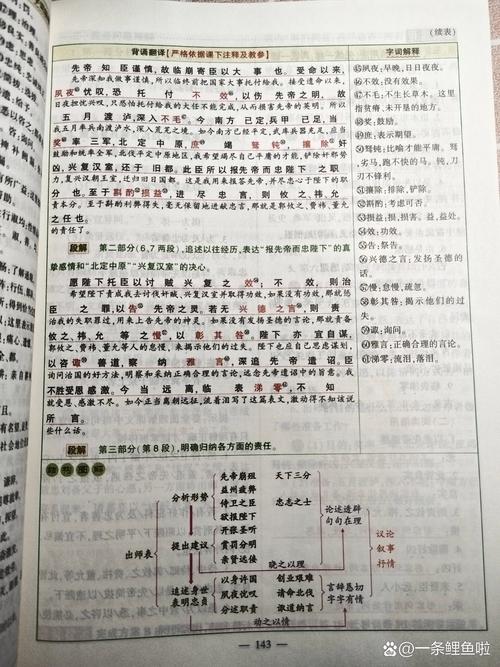 (续表)
背诵翻译【严格依据课下注释及教参】
字词解释
先帝知臣谨慎,故临崩寄臣以大事也。受命以来,
先帝深知我做事谨慎,所以临终前把国家大事托付给我。接受遗命以来,
夙夜忧叹,恐托付不效,以伤先帝之明。故
日夜担忧兴叹,只恐怕托付给我的大任不能完成,从而损害先帝的英明。所以
五月渡泸,深入不毛。今南方已定,兵甲已足,当
我五月率兵南渡泸水,深入荒芜之境。如今南方已经平定,武库兵器充足,应当
奖率三军,北定中原,庶竭驽钝,攘除奸
鼓励和统率全军,北伐平定中原地区,我希望竭尽自己平庸的才能,铲除奸邪势
凶,兴复汉室,还于旧都。此臣所以报先帝而忠陛下之职
力,复兴汉朝王室,迁归旧日国都。这是我用来报答先帝,并尽忠心于陛下的职
分也。至于斟酌损益,进尽忠言,则攸之、祎、允
责本分。至于斟酌利弊得失,毫无保留地进献忠言,那就是郭攸之、费祎、董允
之任也。
的责任了。
段解 第二部分(6、7两段),追述以往经历,表达“报先帝而忠陛下”的真
挚感情和“北定中原”“兴复汉室”的决心。
愿陛下托臣以讨贼兴复之效;不效,则治
希望陛下责成我去讨伐奸贼、兴复汉室并取得功效,如果没有功效,那就惩
臣之罪,以告先帝之灵。若无兴德之言,则责
治我的失职罪过,用来上告先帝的神灵。如果没有发扬圣德的言论,那就责备
攸之、祎、允等之慢,以彰其咎;陛下亦宜自谋,
郭攸之、费祎、董允等人的怠慢,来揭示他们的过失。陛下也应自己思虑谋划,
以咨诹善道,察纳雅言,深追先帝遗诏。臣
询问治国的好方法,明察和采纳正确合理的言论,远念先帝遗诏中的旨意。我
不胜受恩感激。今当远离,临表涕零,不知
就受恩、感激不尽。如今正当离朝远征,流着泪写了这篇表文,激动得不知该说
所言。
些什么话。
段解 第三部分(第8段),明确归纳各方面的责任。
㊺夙夜:早晚,日日夜夜。
㊻不效:没有效果。
㊼不毛:不生长草木。这里
指贫瘠、未开垦的地方。
㊽奖:奖励。
㊾庶:表示期望。
㊿驽钝:比喻才能平庸。驽,
劣马,跑不快的马。钝,刀
刃不锋利。
攘除:排除,铲除。
斟酌:考虑可否。
损益:损,损害。益,益处。
效:功效。
告:祭告。
兴德之言:发扬圣德的
话。
慢:怠慢,疏忽。
彰其咎:揭示他们的过
失。
诹:询问。
雅言:正确合理的言论。
涕零:流泪,落泪。
出师表
分析形势
先帝崩殂
益州疲弊
侍卫之臣
欲报陛下
天下三分
忠志之士
提出建议
开张圣听
赏罚分明
亲贤远佞
论述造辟
句句在理
晓之以理
议论
叙事
抒情
追述身世
表明忠贞
以身许国
夙夜忧叹
分述职责
创业艰难
请命北伐
诹道纳言
言辞恳切
字字有情
动之以情
143
@一条鲤鱼啦